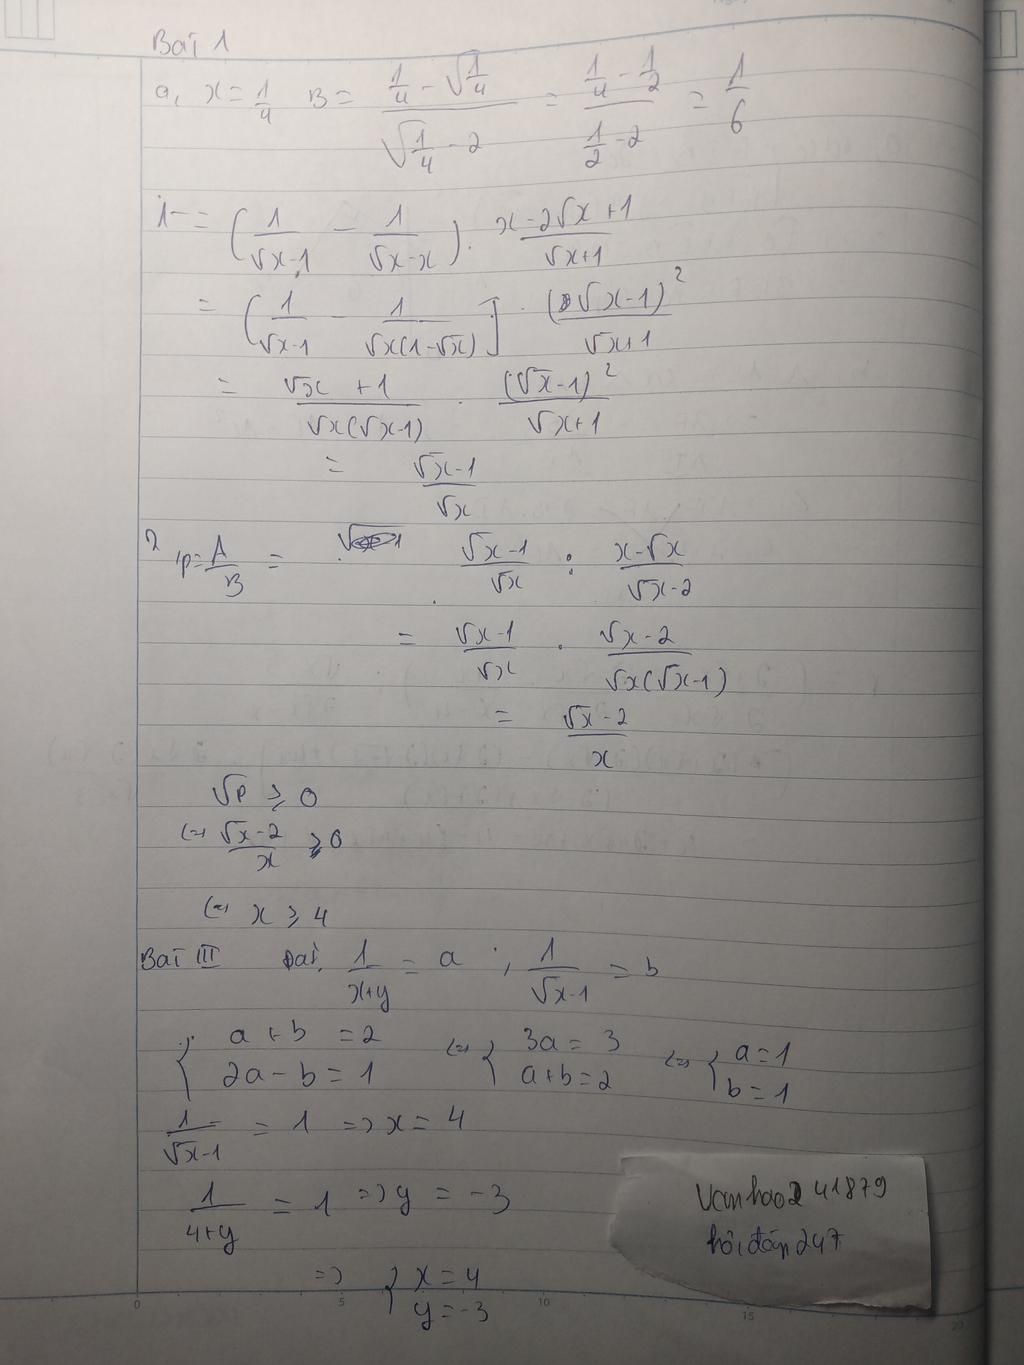 Bài 1
a, x = 1/4 B = (1/4 - √(1/4)) / (√(1/4) - 2) = (1/4 - 1/2) / (1/2 - 2) = 1/6
A = (1/(√x-1) - 1/(√x-x)) . (x-2√x+1)/(√x+1)
= [1/(√x-1) - 1/(√x(1-√x))] . (√x-1)²/(√x+1)
= (√x+1)/(√x(√x-1)) . (√x-1)²/(√x+1)
= (√x-1)/√x
2, P = A/B = (√x-1)/√x : (x-√x)/(√x-2)
= (√x-1)/√x . (√x-2)/(√x(√x-1))
= (√x-2)/x
√P ≥ 0
(=) (√x-2)/x ≥ 0
(=) x ≥ 4
Bài III Đặt 1/(x+y) = a ; 1/(√x-1) = b
{ a + b = 2 ; 2a - b = 1 (=) { 3a = 3 ; a+b = 2 (=) { a = 1 ; b = 1
1/(√x-1) = 1 => x = 4
1/(4+y) = 1 => y = -3
=> { x = 4 ; y = -3
Vanhao241879
hỏi đáp 247
0 5 10 15 20